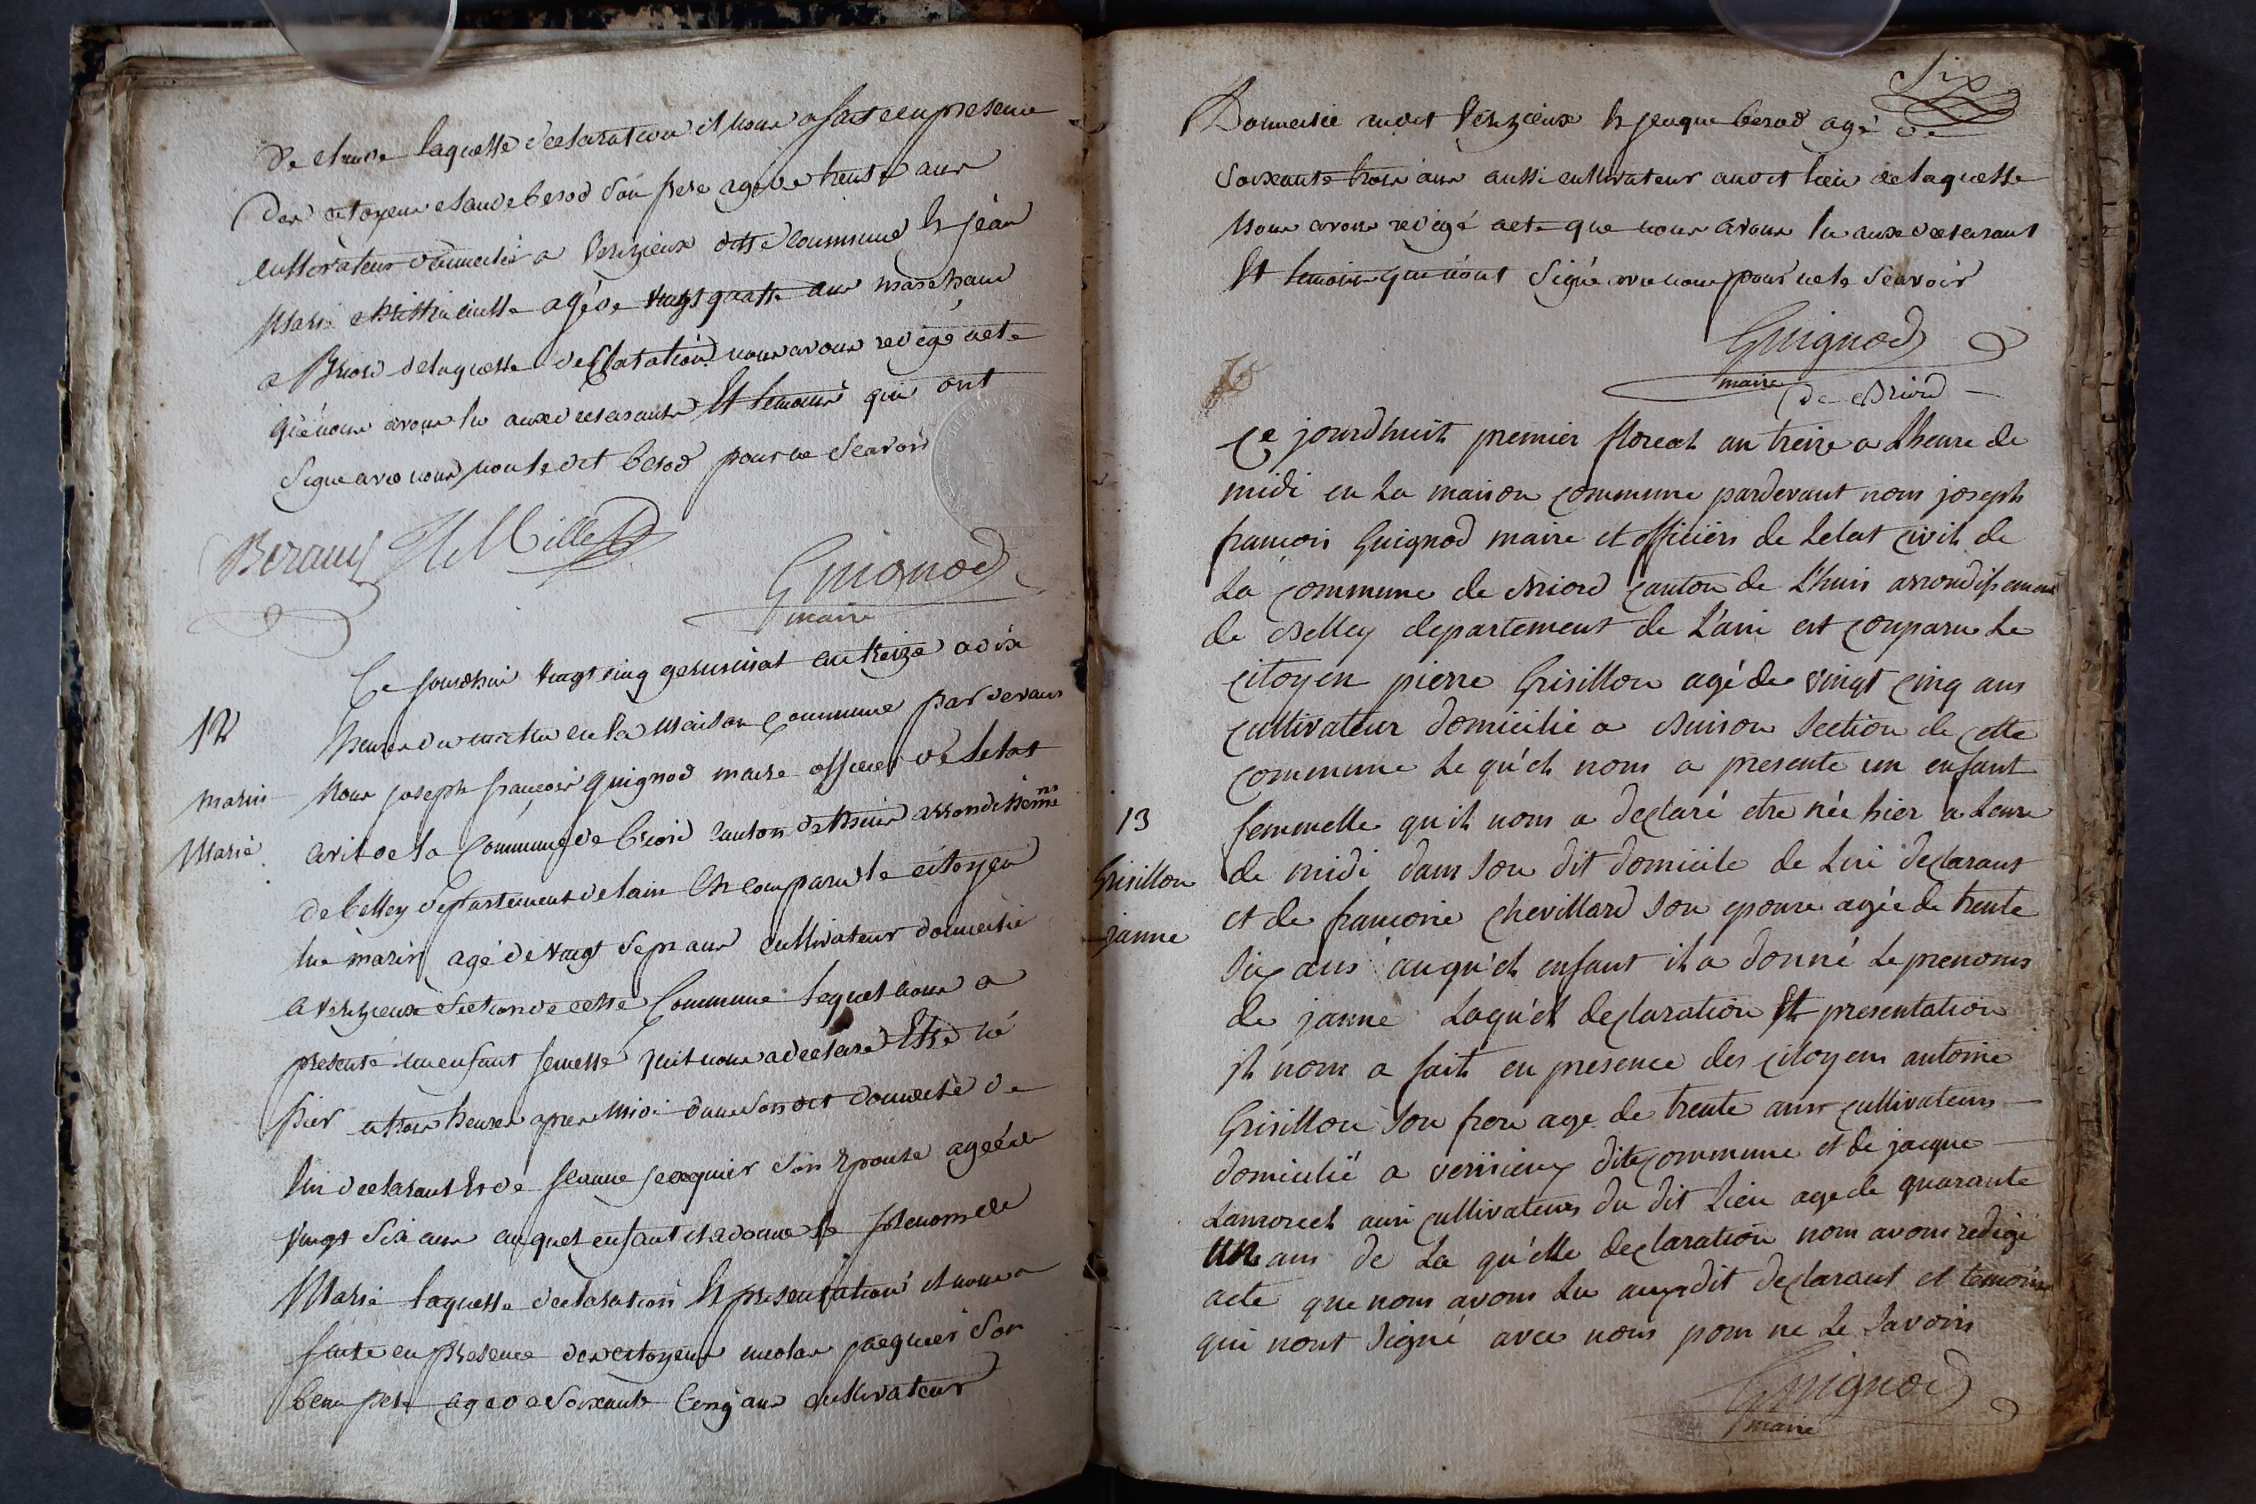 de claude laquelle declaration il nous a fait en presence
des citoyens claude berod son frere age de trente ans
cultivateur domicilié a verizieux dite commune et jean
Marie agé de vingt quatre ans marchand
a Briord de laquelle declaration nous avons redigé acte
que nous avons lu aux declarants et temoins qui ont
signé avec nous non le dit berod pour ne scavoir
Beraud Millet
Guignod
maire
12
marin
Marie
Ce jourdhui vingt cinq germinal an treize a dix
heures du matin en la maison commune par devant
nous joseph françois guignod maire officier de letat
civil de la commune de briord canton de lhuis arrondissemens
de belley departement de lain est comparu le citoyen
marin agé de vingt sept ans cultivateur domicilié
a verizieux section de cette commune lequel nous a
presenté un enfant femelle quil nous a declaré être né
hier a trois heures apres midi dans son dit domicile de
lui declarant et de jeanne jacquier son epouse agée de
vingt six ans auquel enfant il a donné le prenom de
Marie laquelle declaration et presentation il nous a
faite en presence des citoyens nicolas jacquier son
beau pere agé de soixante cinq ans cultivateur
Six
Domicilié audit verizieux et jacque berod agé de
soixante trois ans aussi cultivateur au dit lieu de laquelle
nous avons redigé acte que nous avons lu aux declarant
et temoins qui nont signé avec nous pour ne le scavoir
Guignod
maire
de Briord
13
Grisillon
janne
Ce jourdhuit premier floreal an treize a lheure de
midi en la maison commune pardevant nous joseph
francois Guignod maire et officiers de letat civil de
la commune de Briord canton de Lhuis arrondissement
de Belley departement de L'ain est conparu le
citoyen pierre Grisillon agé de vingt cinq ans
cultivateur domicilié a Buison section de cette
commune le qu'el nous a presente un enfant
femmelle qu'il nous a declaré etre née hier a leure
de midi dans son dit domicile de lui declarant
et de francoise chevillard son epouse agée de trente
six ans auqu'el enfant il a donné le prenoms
de janne laqu'el declaration et presentation
il nous a fait en presence des citoyens antoine
Grisillon son frere age de trente ans cultivateurs
domicilié a verisieux dite commune et de jacque
Lamorel aussi cultivateurs du dit lieu age de quarante
un ans de la qu'elle declaration nous avons redigé
acte que nous avons lu auxdit declarant et temoins
qui nont signé avec nous pour ne le savoir
Guignod
maire